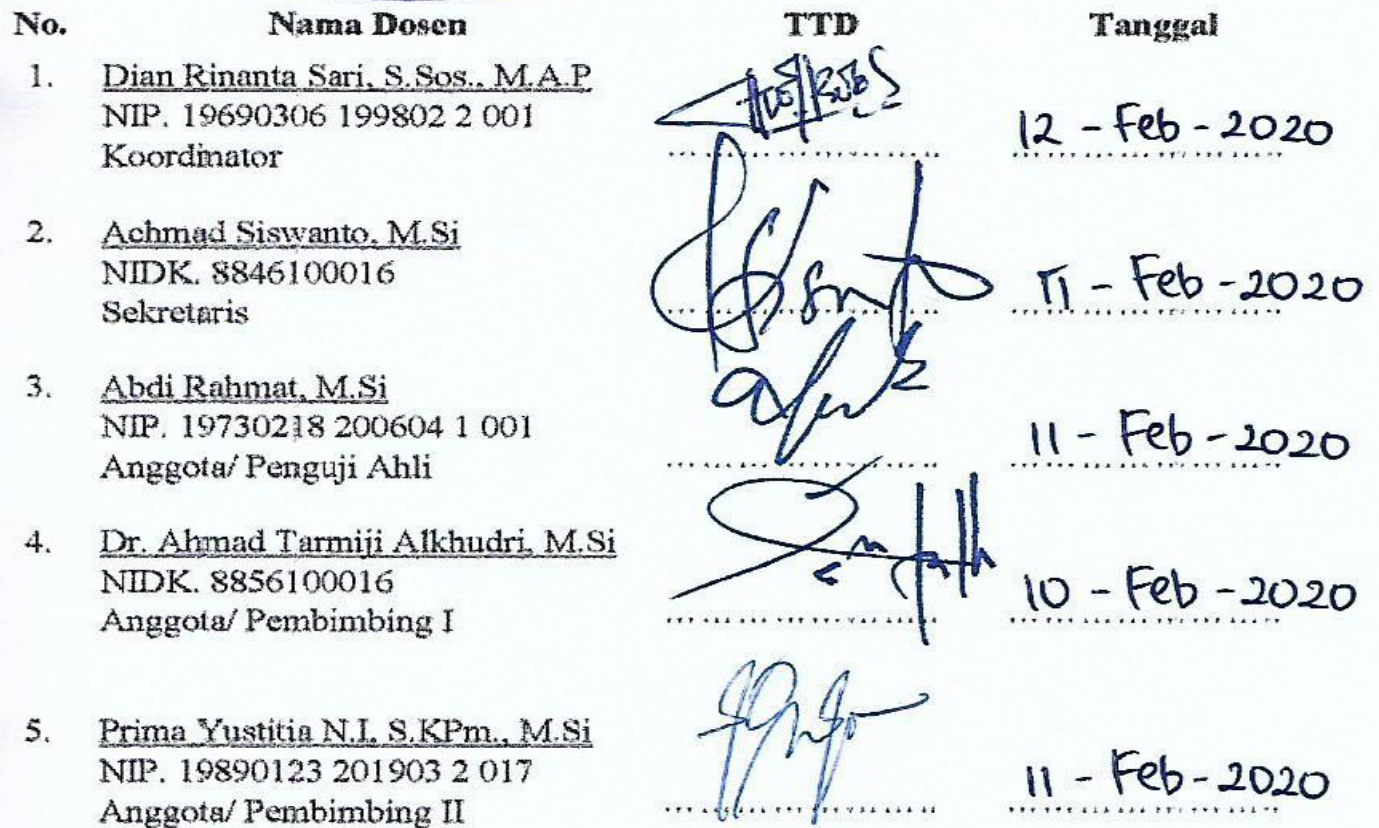 No. Nama Dosen TTD Tanggal
1. Dian Rinanta Sari, S.Sos., M.A.P
NIP. 19690306 199802 2 001
Koordinator 12 - Feb - 2020
2. Achmad Siswanto, M.Si
NIDK. 8846100016
Sekretaris 11 - Feb - 2020
3. Abdi Rahmat, M.Si
NIP. 19730218 200604 1 001
Anggota/ Penguji Ahli 11 - Feb - 2020
4. Dr. Ahmad Tarmiji Alkhudri, M.Si
NIDK. 8856100016
Anggota/ Pembimbing I 10 - Feb - 2020
5. Prima Yustitia N.I, S.KPm., M.Si
NIP. 19890123 201903 2 017
Anggota/ Pembimbing II 11 - Feb - 2020